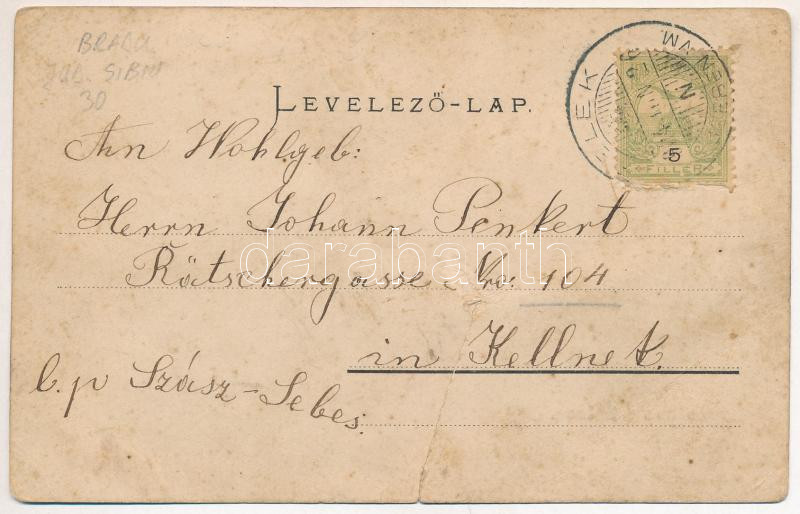 BRADU
JUD. SIBIU
30
LEVELEZŐ-LAP.
5
FILLER
An Wohlgeb:
Herrn Johann Penkert
Rätschergasse Nro. 104
in Kellnek.
l. p Szász-Sebes.
darabanth